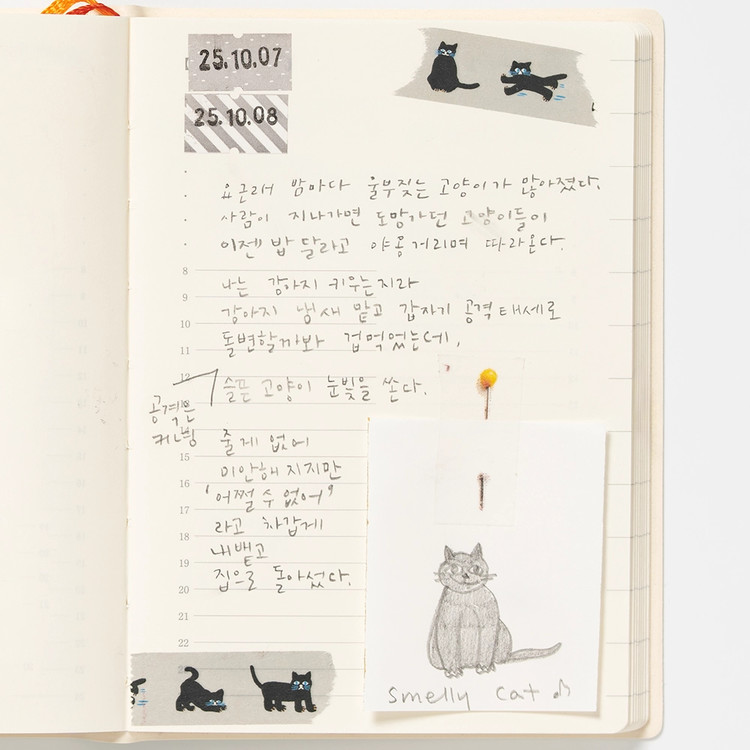 25.10.07
25.10.08
요근래 밤마다 울부짖는 고양이가 많아졌다.
사람이 지나가면 도망가던 고양이들이
이젠 밥 달라고 야옹거리며 따라온다.
8
나는 강아지 키우는지라
9
강아지 냄새 맡고 갑자기 공격태세로
10
돌변할까봐 겁먹었는데,
11
12
공격은
커녕
슬픈 고양이 눈빛을 쏜다.
줄게 없어
15
미안해지지만
16
'어쩔 수 없어'
17
라고 차갑게
18
내뱉고
19
집으로 돌아섰다.
20
21
22
smelly cat